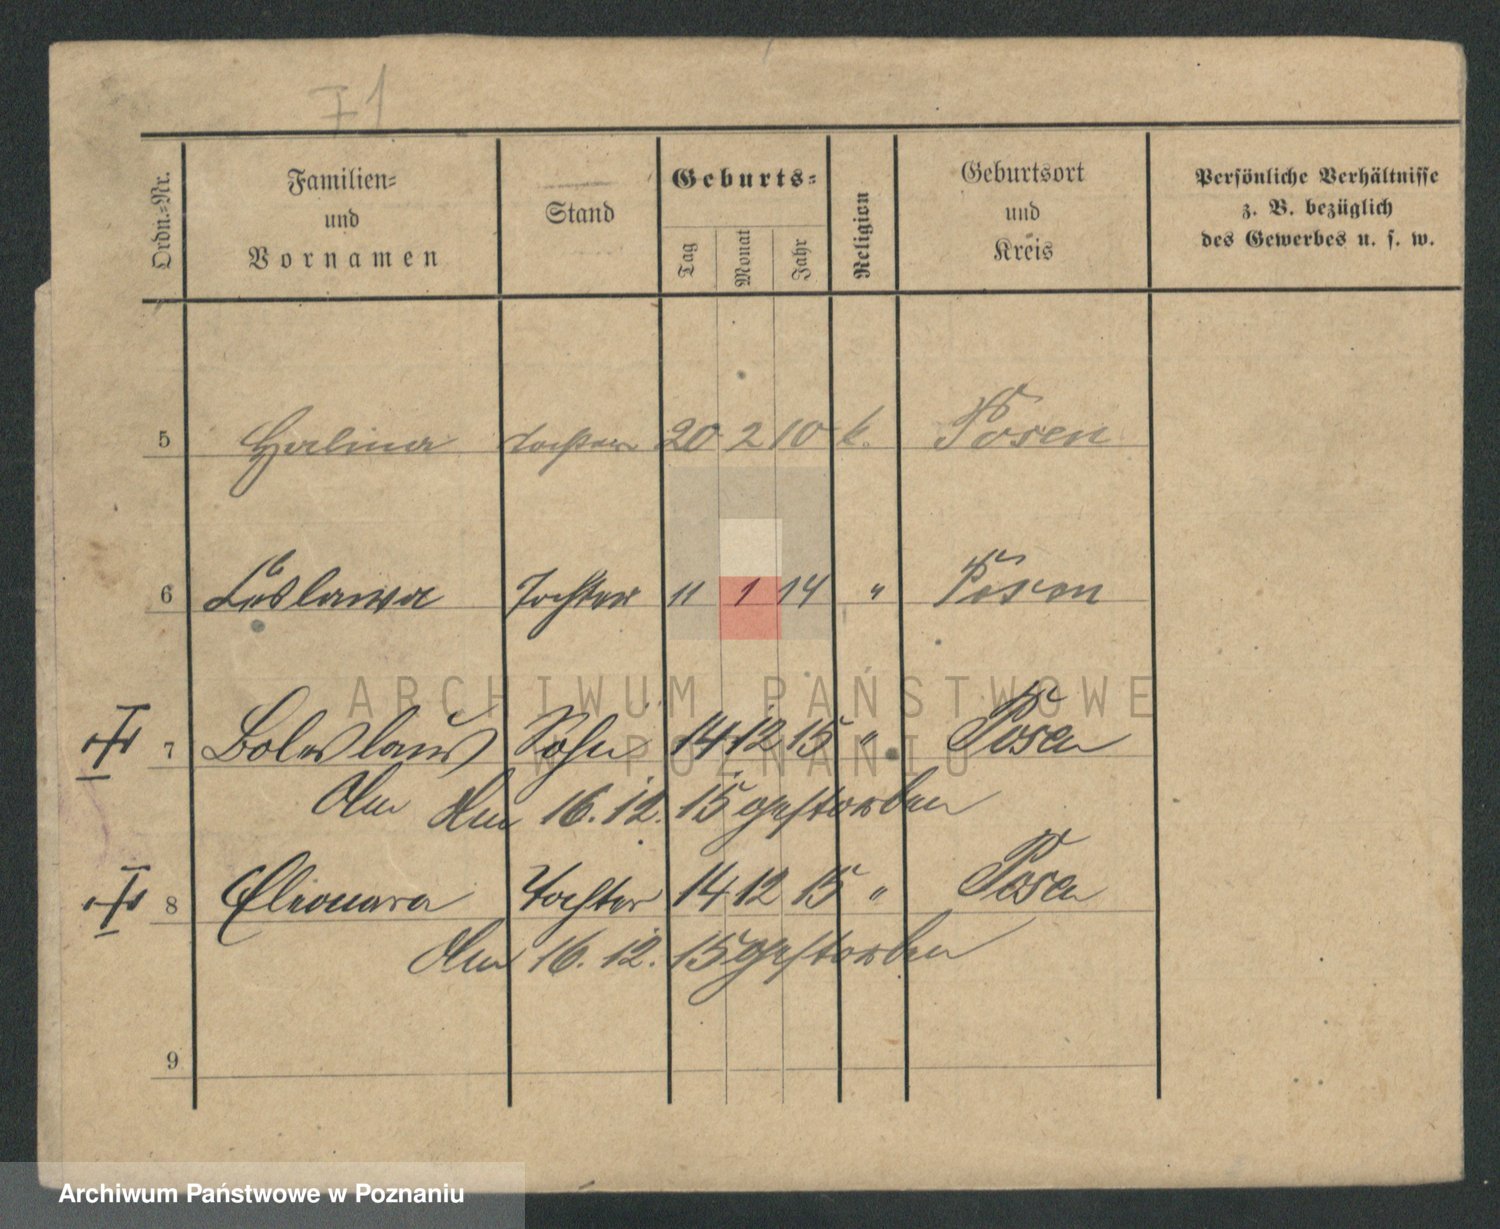 71
Ordn.-Nr.
Familien-
und
Vornamen
Stand
Geburts-
Tag
Monat
Jahr
Religion
Geburtsort
und
Kreis
Persönliche Verhältnisse
z. B. bezüglich
des Gewerbes u. s. w.
5 Halina Tochter 20 2 10 k. Posen
6 Leslawa Tochter 11 1 14 " Posen
ARCHIWUM PAŃSTWOWE
7 Boleslaus Sohn 14 12 15 " Posen
W POZNANIU
Am Am 16. 12. 15 gestorben
8 Eleonara Tochter 14 12 15 " Posen
Am 16. 12. 15 gestorben
9
Archiwum Państwowe w Poznaniu